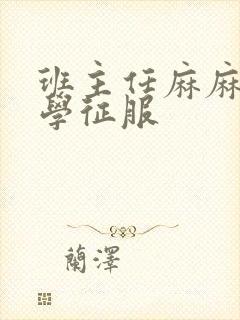 班主任麻麻
學征服
蘭澤